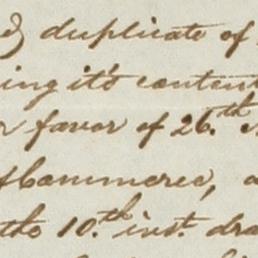 duplicate of
ing it's content
favor of 26.th
Hammerer, a
the 10.th inst. dra